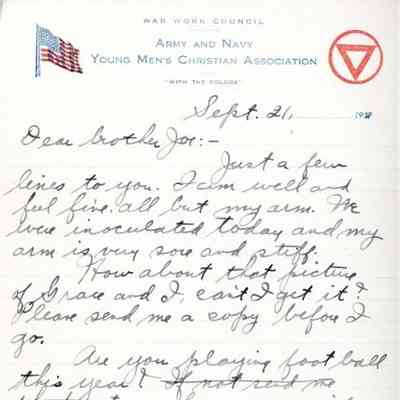 WAR WORK COUNCIL
ARMY AND NAVY
YOUNG MEN'S CHRISTIAN ASSOCIATION
"WITH THE COLORS"
Sept. 21, 191
Dear brother Joe:-
Just a few
lines to you. I am well and
feel fine. all but my arm. We
were inoculated today and my
arm is very sore and stiff.
How about that picture
of Grace and I, can't I get it?
Please send me a copy before I
go.
Are you playing foot ball
this year? If not send me